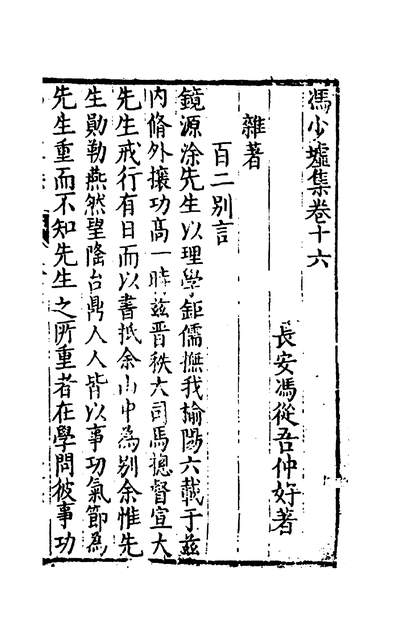 馮少墟集卷十六
長安馮從吾仲好著
雜著
百二別言
鏡源涂先生以理學鉅儒撫我榆陽六載于茲
內脩外攘功高一時茲晉秩大司馬總督宣大
先生戒行有日而以書抵余山中為別余惟先
生勛勒燕然望隆台鼎人人皆以事功氣節為
先生重而不知先生之所重者在學問彼事功